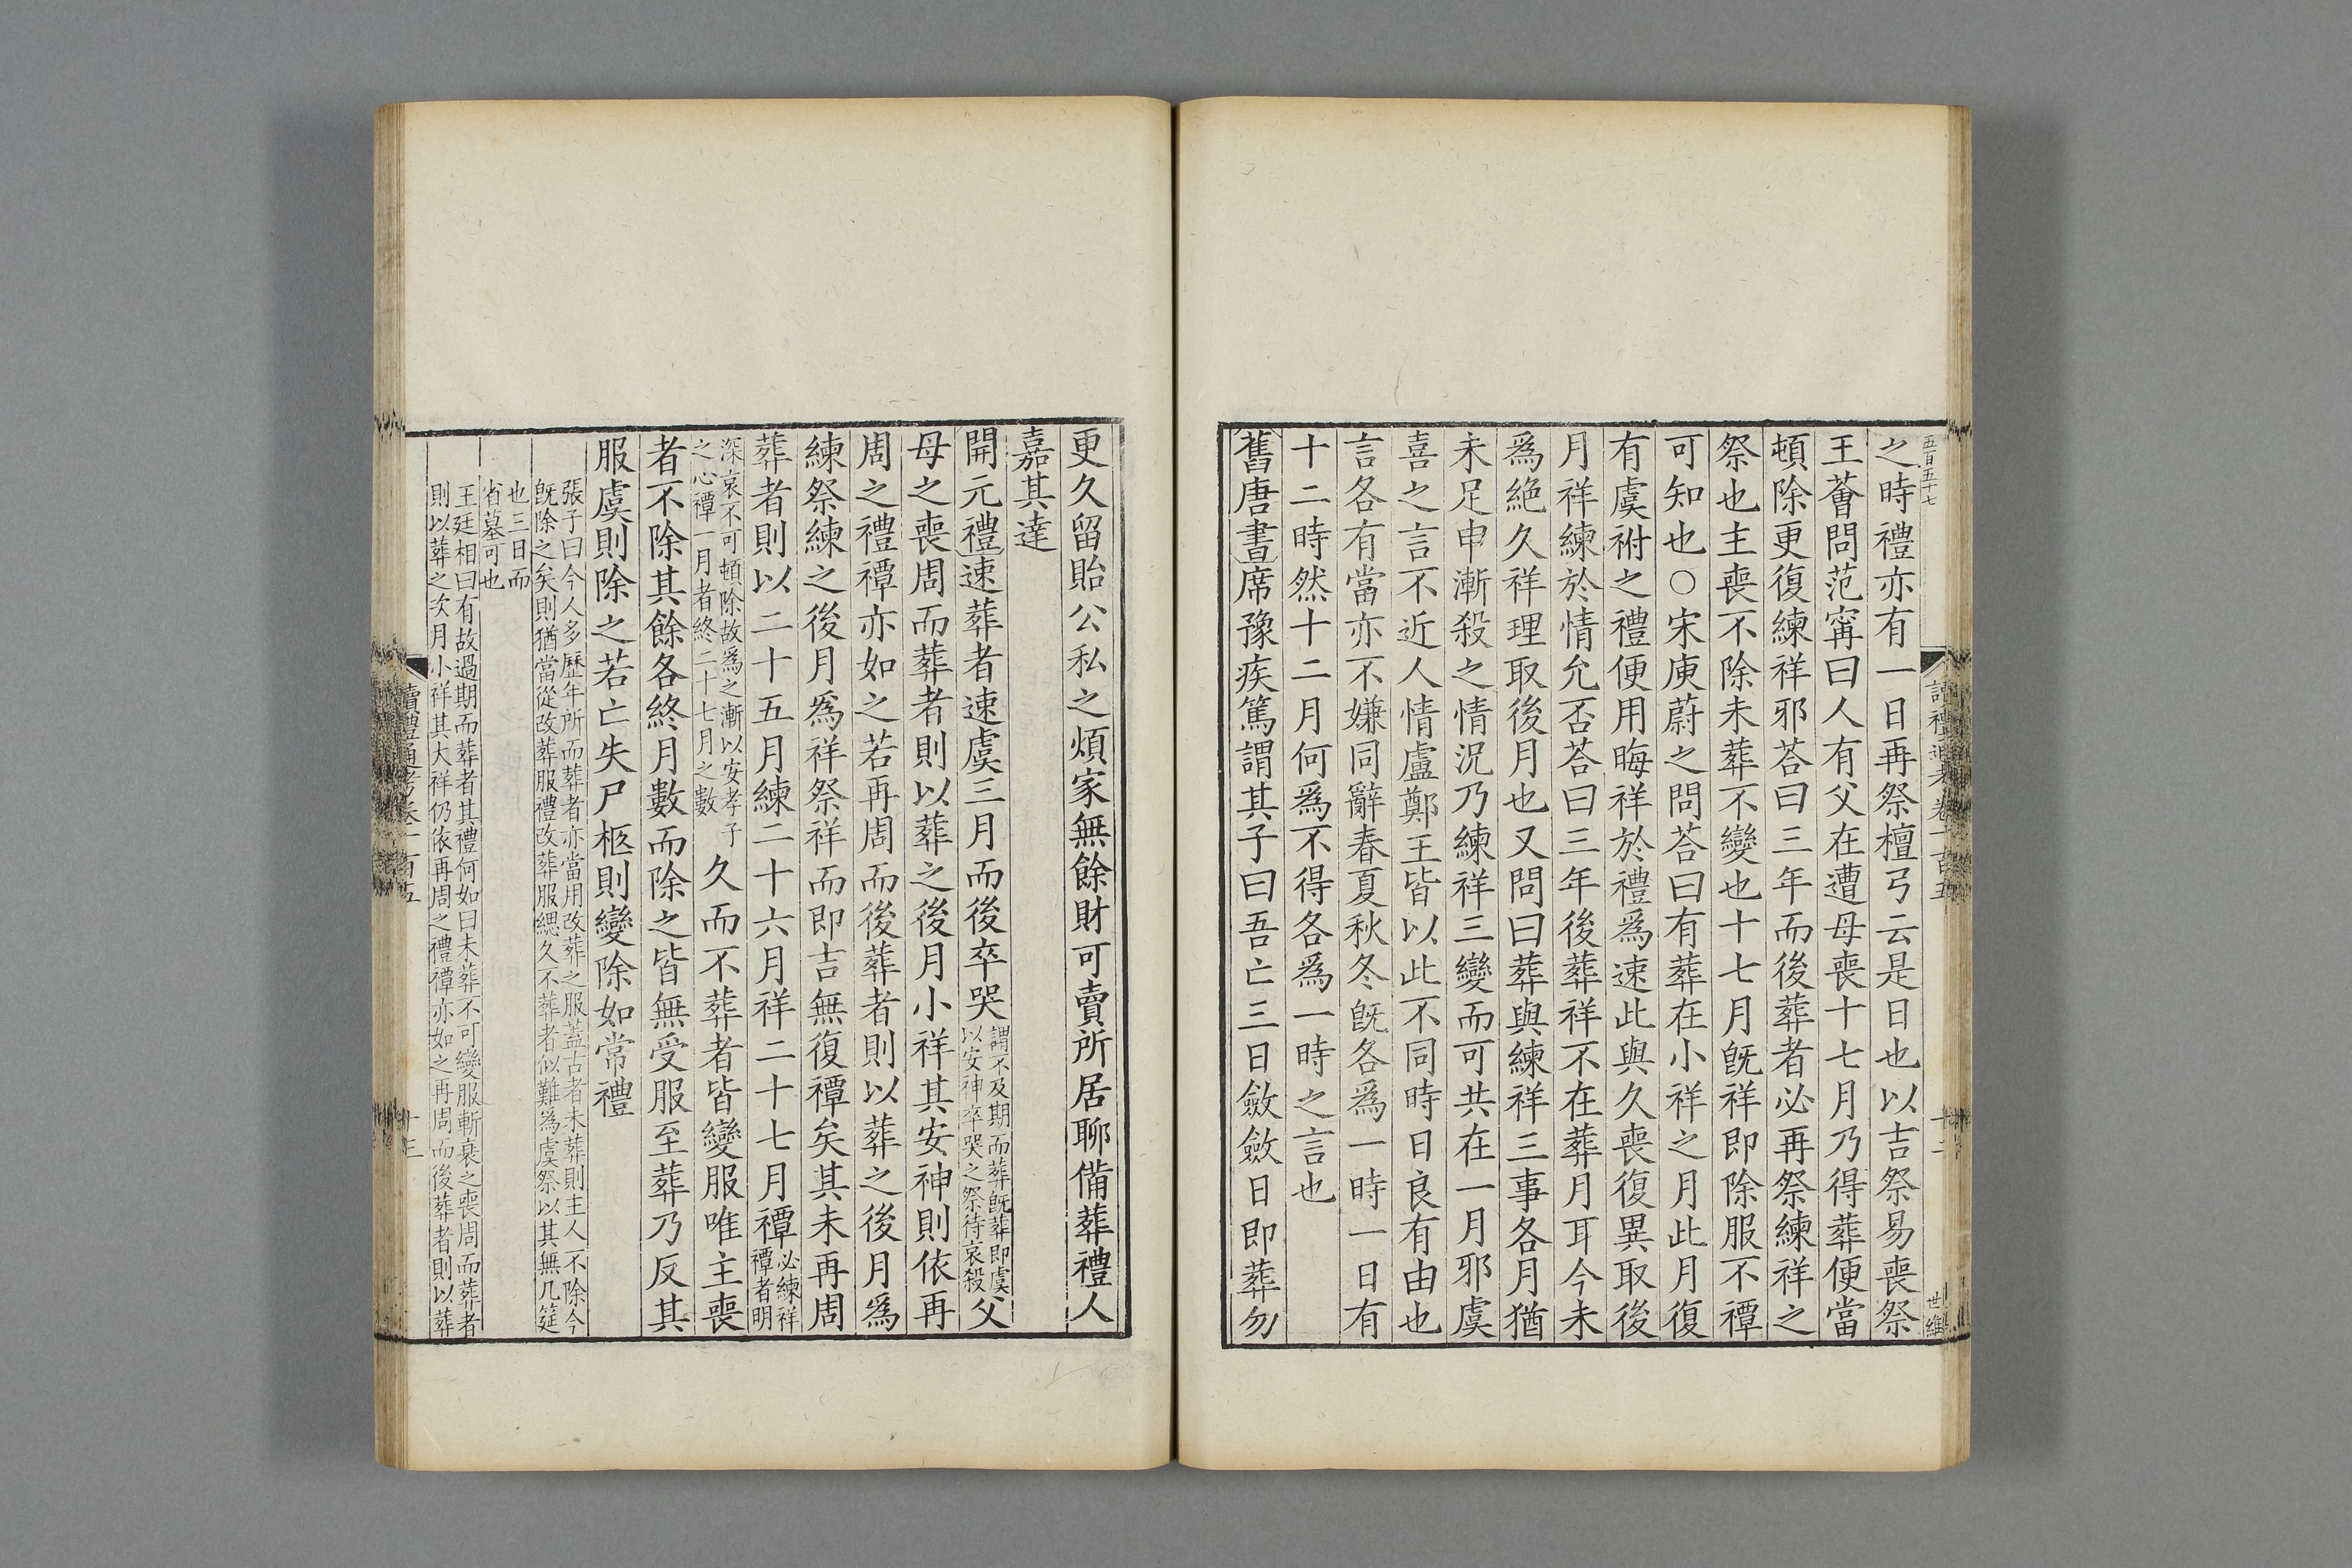 五百五十七
讀禮通考卷一百五
十二
世維
之時禮亦有一日再祭檀弓云是日也以吉祭易喪祭
王薈問范甯曰人有父在遭母喪十七月乃得葬便當
頓除更復練祥邪荅曰三年而後葬者必再祭練祥之
祭也主喪不除未葬不變也十七月旣祥即除服不禫
可知也○宋庾蔚之問荅曰有葬在小祥之月此月復
有虞祔之禮便用晦祥於禮爲速此與久喪復異取後
月祥練於情允否荅曰三年後葬祥不在葬月耳今未
爲絶久祥理取後月也又問曰葬與練祥三事各月猶
未足申漸殺之情況乃練祥三變而可共在一月邪虞
喜之言不近人情盧鄭王皆以此不同時日良有由也
言各有當亦不嫌同辭春夏秋冬旣各爲一時一日有
十二時然十二月何爲不得各爲一時之言也
舊唐書席豫疾篤謂其子曰吾亡三日斂斂日即葬勿
更久留貽公私之煩家無餘財可賣所居聊備葬禮人
嘉其達
開元禮速葬者速虞三月而後卒哭謂不及期而葬旣葬即虞以安神卒哭之祭待哀殺父
母之喪周而葬者則以葬之後月小祥其安神則依再
周之禮禫亦如之若再周而後葬者則以葬之後月爲
練祭練之後月爲祥祭祥而即吉無復禫矣其未再周
葬者則以二十五月練二十六月祥二十七月禫必練祥禫者明
深哀不可頓除故爲之漸以安孝子之心禫一月者終二十七月之數久而不葬者皆變服唯主喪
者不除其餘各終月數而除之皆無受服至葬乃反其
服虞則除之若亡失尸柩則變除如常禮
張子曰今人多歷年所而葬者亦當用改葬之服蓋古者未葬則主人不除今
旣除之矣則猶當從改葬服禮改葬服緦久不葬者似難爲虞祭以其無几筵
也三日而
省墓可也
王廷相曰有故過期而葬者其禮何如曰未葬不可變服斬衰之喪周而葬者
則以葬之次月小祥其大祥仍依再周之禮禫亦如之再周而後葬者則以葬
讀禮通考卷一百五
十三